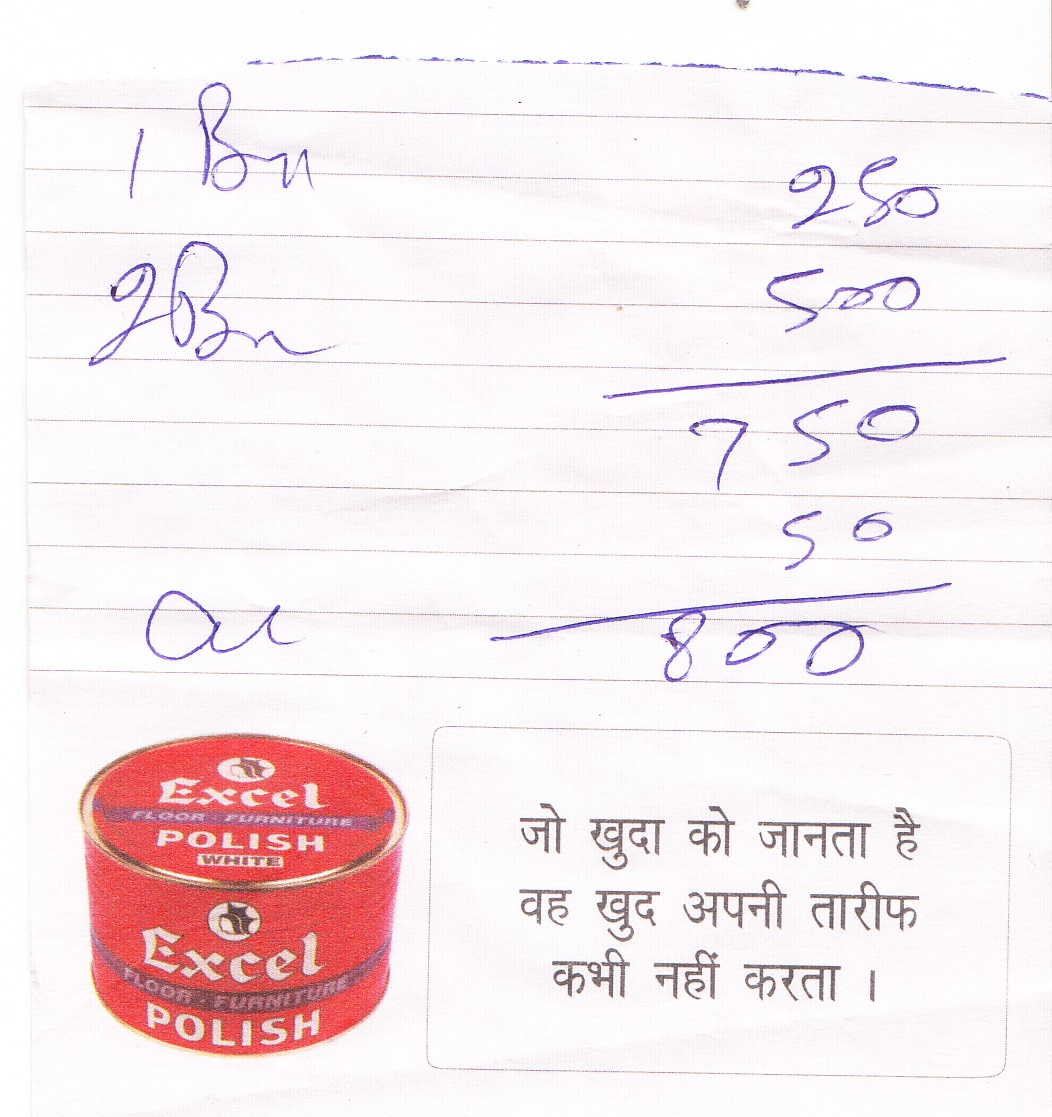 1 Bn 250
2 Bn 500
750
50
800
Excel
FLOOR FURNITURE
POLISH
WHITE
Excel
FLOOR - FURNITURE
POLISH
जो खुदा को जानता है
वह खुद अपनी तारीफ
कभी नहीं करता ।